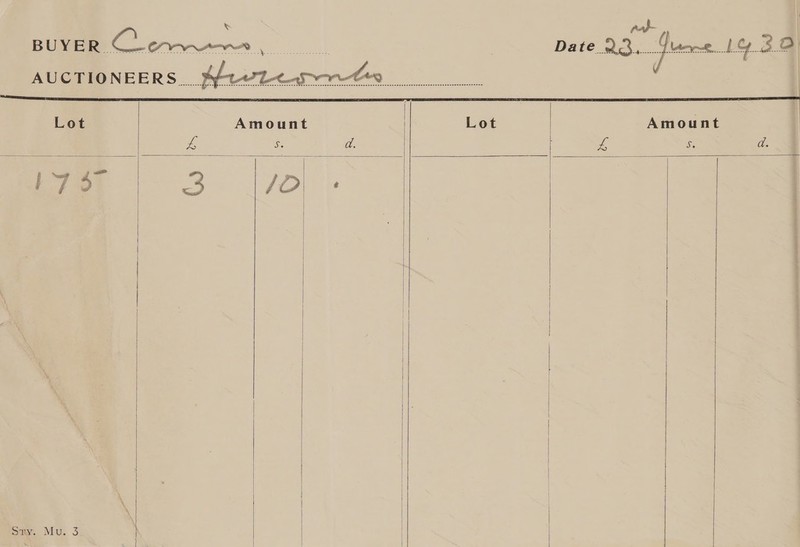 BUYER Comins. Date 23rd June 1930
AUCTIONEERS Hurcombs
Lot Amount Lot Amount
£ s. d. £ s. d.
175 3 10 .
Sty. Mu. 3